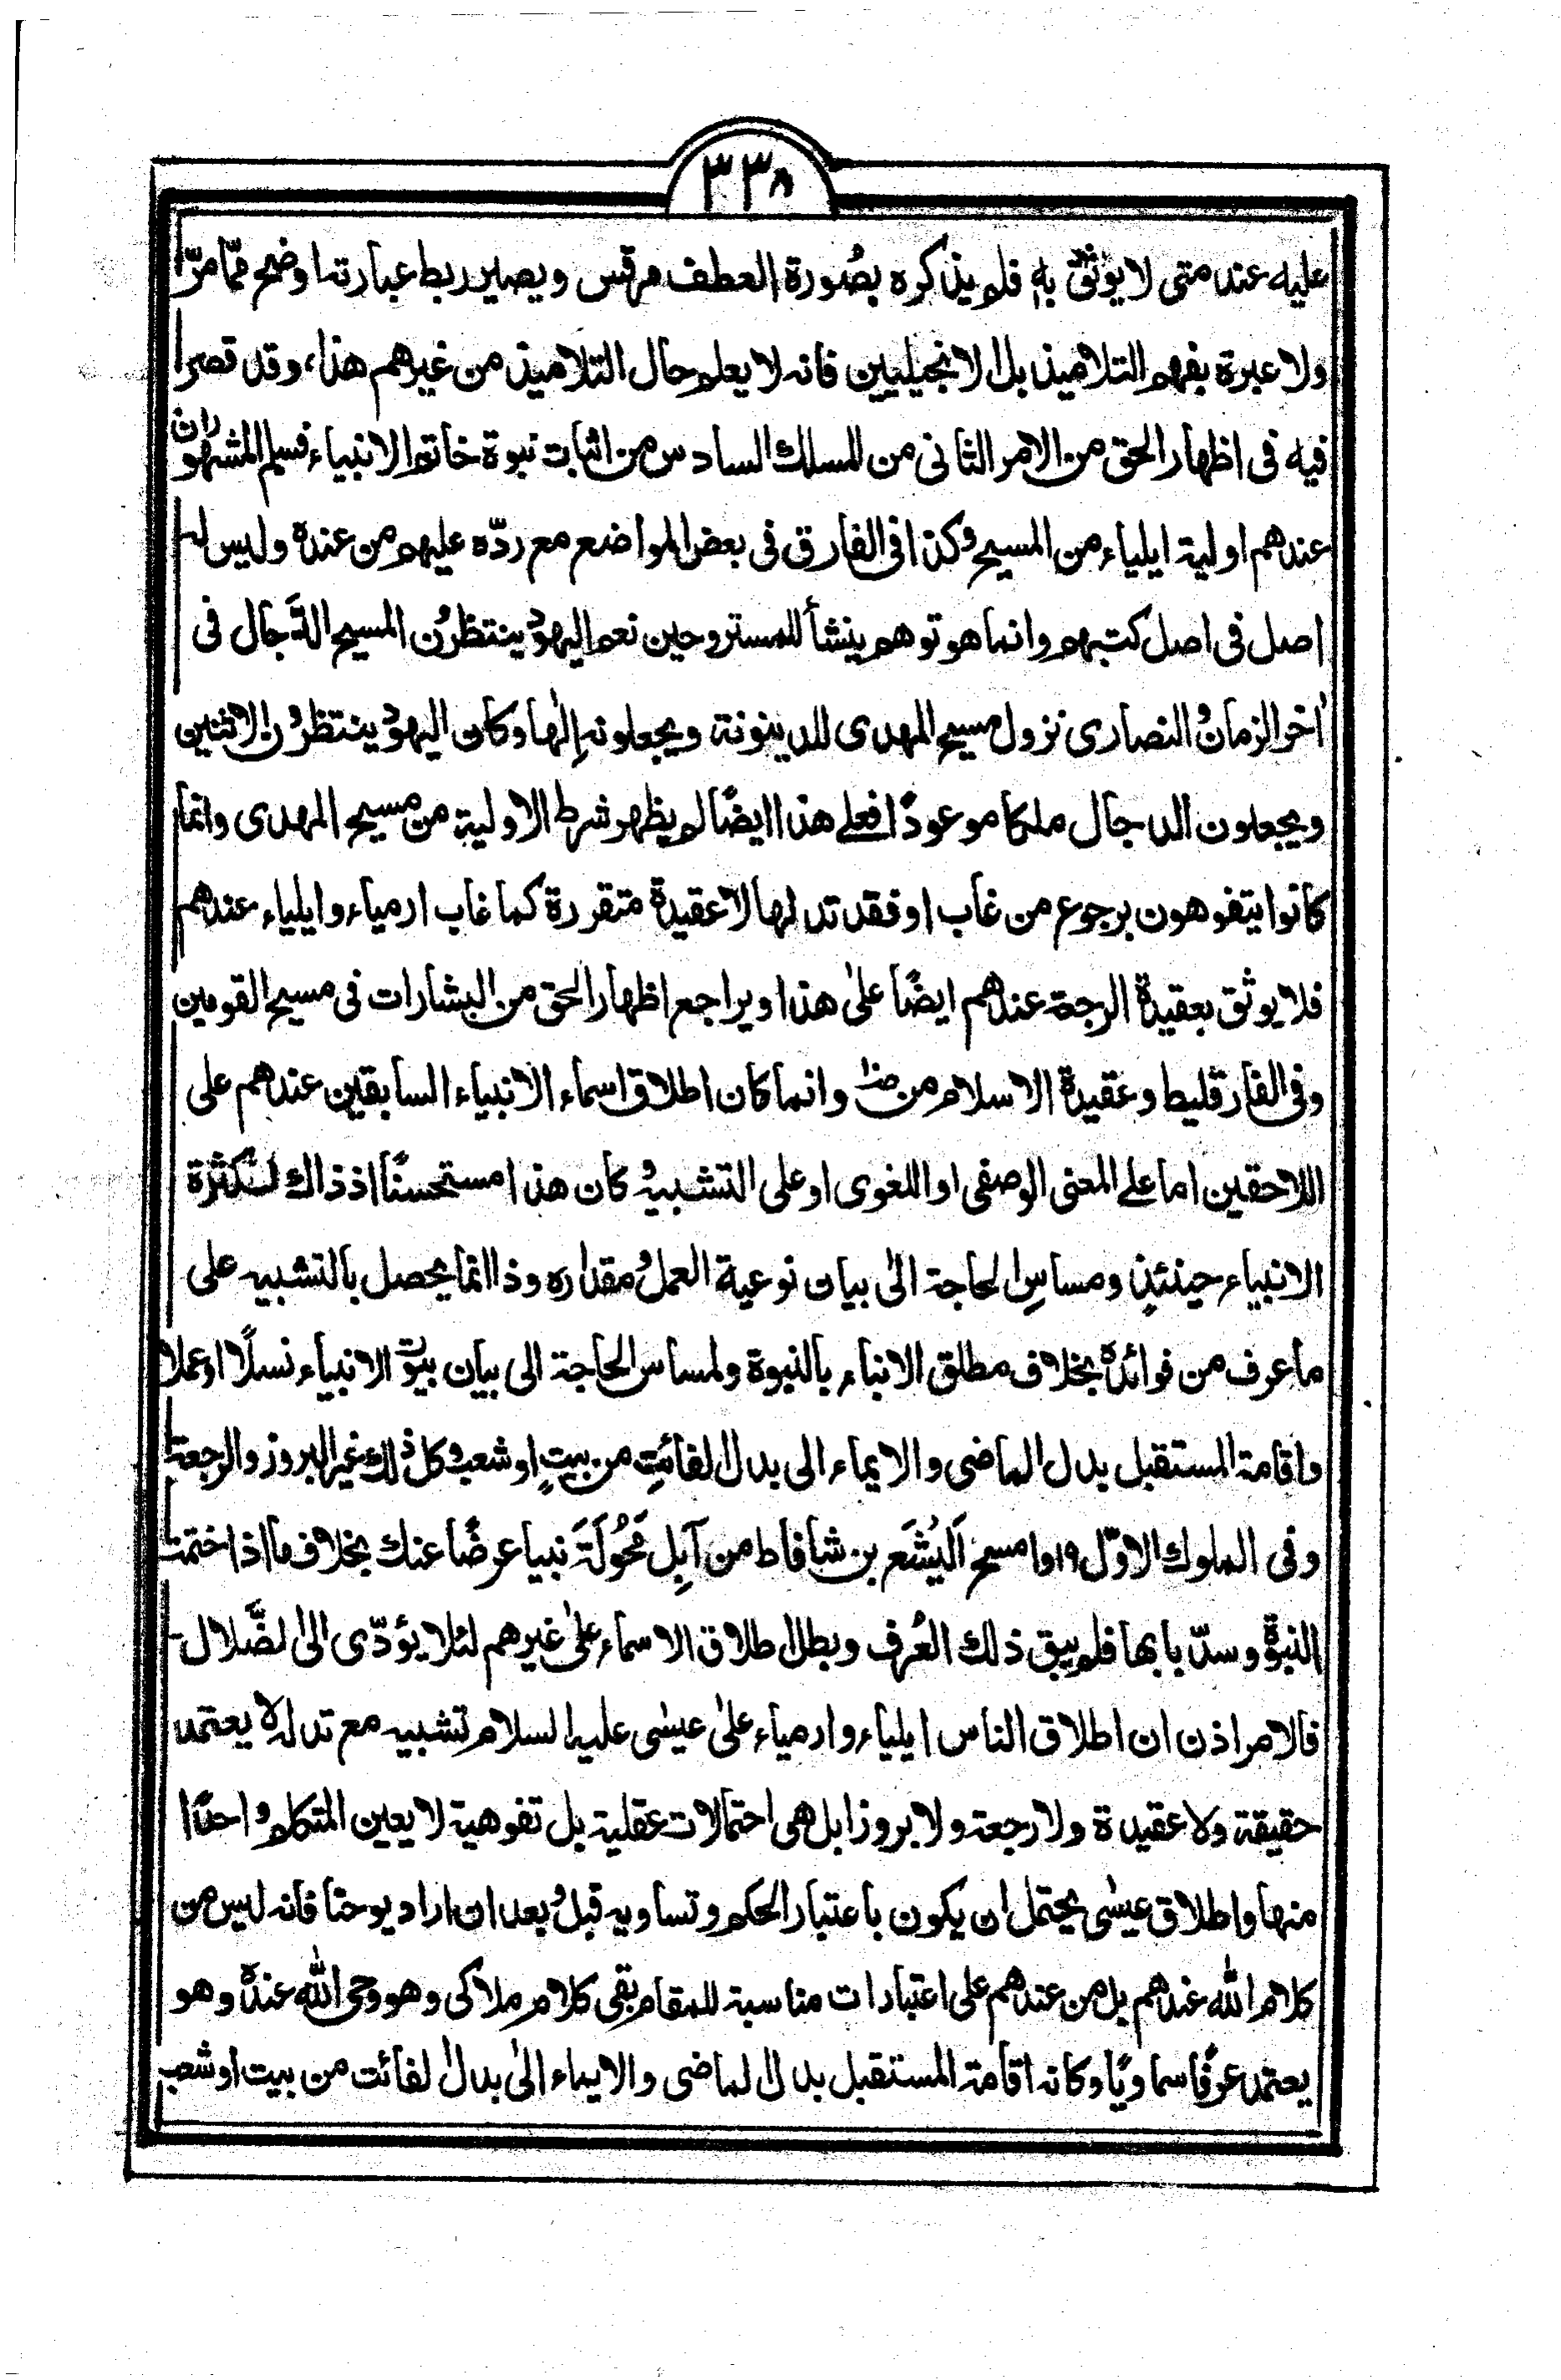 ٣٣٨
عليه عند متى لا يوثق به فلم يذكره بصُورة العطف مرقس ويصير ربط عبارته اوضح ممّا مرّا
ولا عبرة بفهم التلاميذ بل الانجيليين فانه لا يعلم حال التلاميذ من غيرهم هذا، وقد قصرا
فيه فى اظهار الحق من الامر الثانى من المسلك السادس من اثبات نبوة خاتم الانبياء فسلم المشهور ان
عندهم اولية ايلياء من المسيح وكذا فى الفارق فى بعض المواضع مع ردّه عليهم من عنده وليس له
اصل فى اصل كتبهم وانما هو توهم ينشأ للمستروحين نعم اليهود ينتظرُن المسيح الدَّجال فى
اٰخر الزمان والنصارى نزول مسيح المهدى للدينونة ويجعلونه اِلٰها وكان اليهود ينتظرُن الاثنين
ويجعلون الدجال ملكا موعودًا فعلے هذا ايضًا لم يظهر شرط الاولية من مسيح المهدى وانما
كانوا يتفوهون برجوع من غاب او فقد تدلها لا عقيدة متقررة كما غاب ارمياء وايلياء عندهم
فلا يوثق بعقيدة الرجعة عندهم ايضًا علىٰ هذا ويراجع اظهار الحق من البشارات فى مسيح القومين
وفى الفارقليط وعقيدة الاسلام من وانما كان اطلاق اسماء الانبياء السابقين عندهم على
اللاحقين اما علے المعنى الوصفى او اللغوى او على التشبيه وكان هذا مستحسنًا اذ ذاك لكثرة
الانبياء حينئذٍ ومساسِ الحاجة الىٰ بيان نوعية العمل ومقداره وذا انما يحصل بالتشبيه على
ما عرف من فوائده بخلاف مطلق الانباء بالنبوة ولمساس الحاجة الى بيان بيوت الانبياء نسلًا او عملا
واقامة المستقبل بدل الماضى والايماء الى بدل الفائتِ من بيتٍ او شعب وكل ذلك غير البروز والرجعة
وفى الملوك الاوّل ١٩ وامسح اَليُشَع بن شافاط من آبِل مَحُولَةَ نبيا عوضًا عنك بخلاف ما اذا اختمت
النبوّة وسدّ بابها فلم يبق ذلك العُرف وبطل اطلاق الاسماء علىٰ غيرهم لئلا يؤدّى الى الضَّلال
فالامر اذن ان اطلاق الناس ايلياء وارمياء علىٰ عيسٰى عليه السلام تشبيه مع تدله لا يعتمد
حقيقة ولا عقيدة ولا رجعة ولا بروزا بل هى احتمالات عقلية بل تفوهية لا يعين المتكلم واحدًا
منها واطلاق عيسٰى يحتمل ان يكون باعتبار الحكم وتساويه قبلُ وبعد ان اراد يوحنا فانه ليس من
كلام الله عندهم بل من عندهم على اعتبارات مناسبة للمقام بقى كلام ملاكى وهو وحى الله عنده وهو
يعتمد عرفًا سماويًا وكانه اقامة المستقبل بدل الماضى والايماء الىٰ بدل الفائت من بيت او شعب